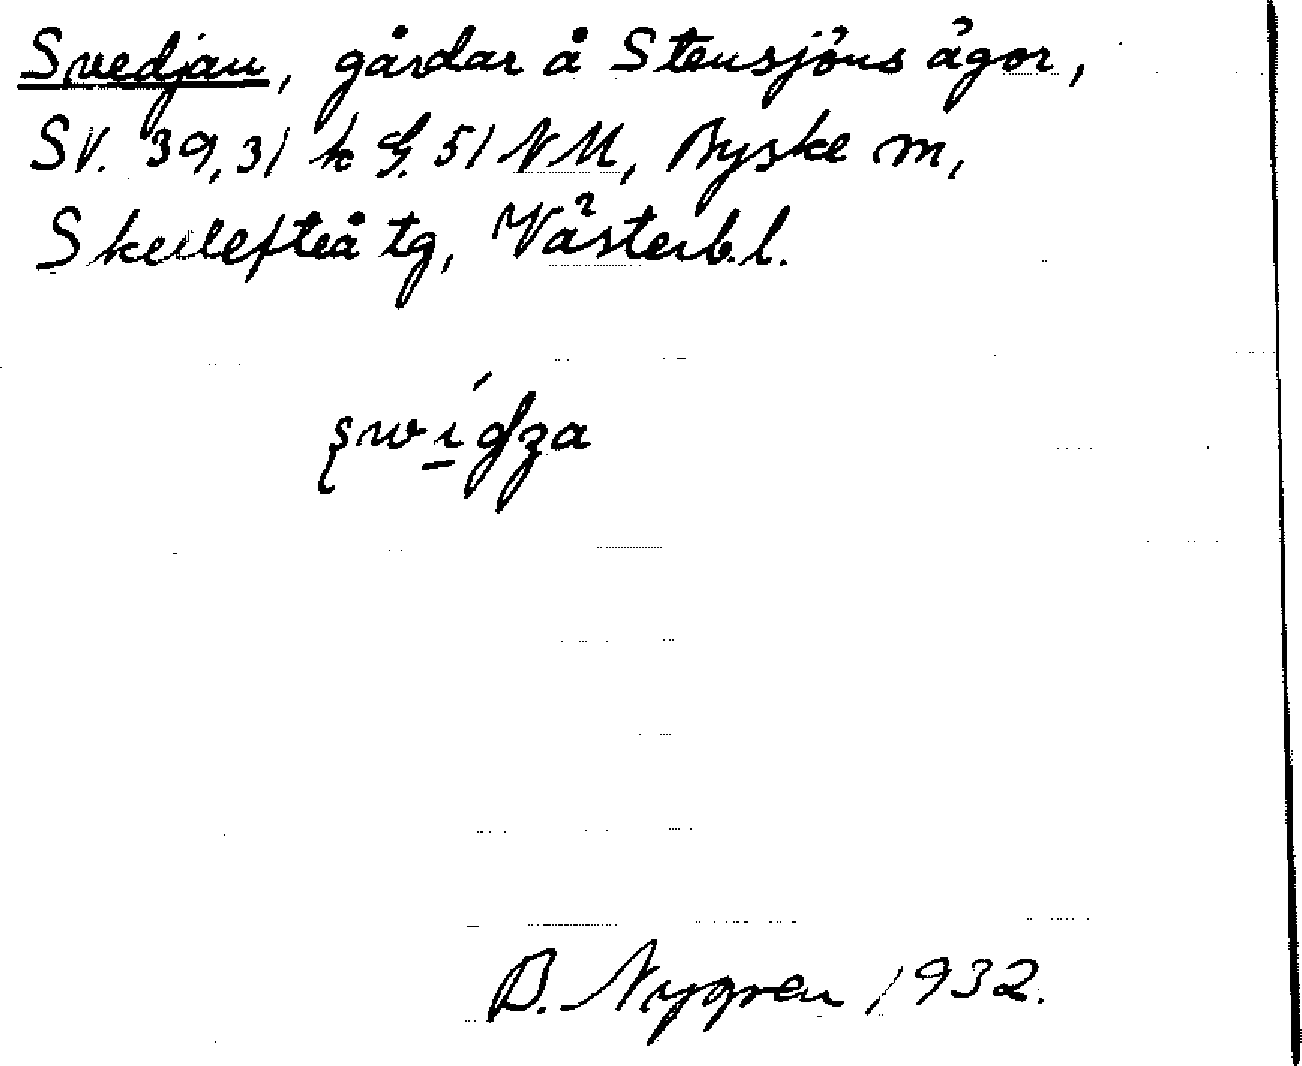 Svedjan, gårdar å Stensjöns ägor,
SV. 39,31 k G. 51 NM, Byske m,
Skellefteå tg, Västerb.l.
B. Nygren 1932.